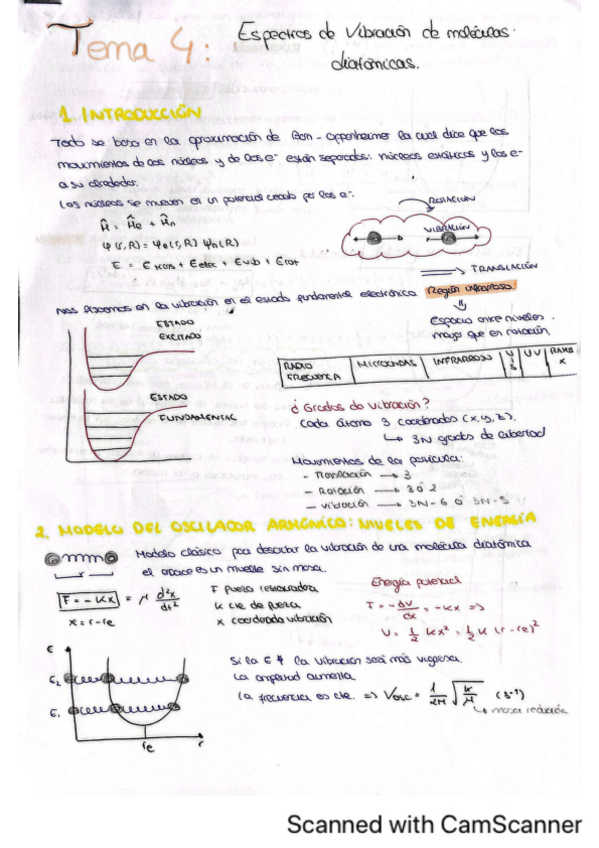 Tema 4: Espectros de Vibración de moléculas
diatómicas.
1. INTRODUCCIÓN
Todo se basa en la aproximación de Born-Oppenheimer la cual dice que los
movimientos de los núcleos y de los e- están separados: núcleos estáticos y los e-
a su alrededor.
Los núcleos se mueven en un potencial creado por los e-.
ROTACIÓN
VIBRACIÓN
TRANSLACIÓN
Ĥ = Ĥe + Ĥn
φ(r,R) = φe(r,R) φn(R)
E = Etrans + Eelec + Evib + Erot
Nos fijaremos en la vibración en el estado fundamental electrónico. Región infrarroja.
Espacio entre niveles
mayor que en rotación.
ESTADO
EXCITADO
ESTADO
FUNDAMENTAL
RADIO
FRECUENCIA
MICROONDAS
INFRARROJO
VIS
UV
RAYOS
X
¿Grados de vibración?
Cada átomo 3 coordenadas (x,y,z).
↳ 3N grados de libertad
Movimientos de la partícula:
- Translación → 3
- Rotación → 3 ó 2
- Vibración → 3N-6 ó 3N-5
2. MODELO DEL OSCILADOR ARMÓNICO: NIVELES DE ENERGÍA
Modelo clásico para describir la vibración de una molécula diatómica
el enlace es un muelle sin masa.
F = -kx = μ d²x/dt²
x = r-re
F fuerza restauradora
k cte de fuerza
x coordenada vibración
Energía potencial
F = -dV/dx = -kx =>
V = 1/2 kx² = 1/2 k (r-re)²
E
E2
E1
re
r
Si la E ↑ la vibración será más vigorosa.
La amplitud aumenta
la frecuencia es cte. => Vosc = 1/2π √k/μ (s⁻¹)
↳ masa reducida
Scanned with CamScanner